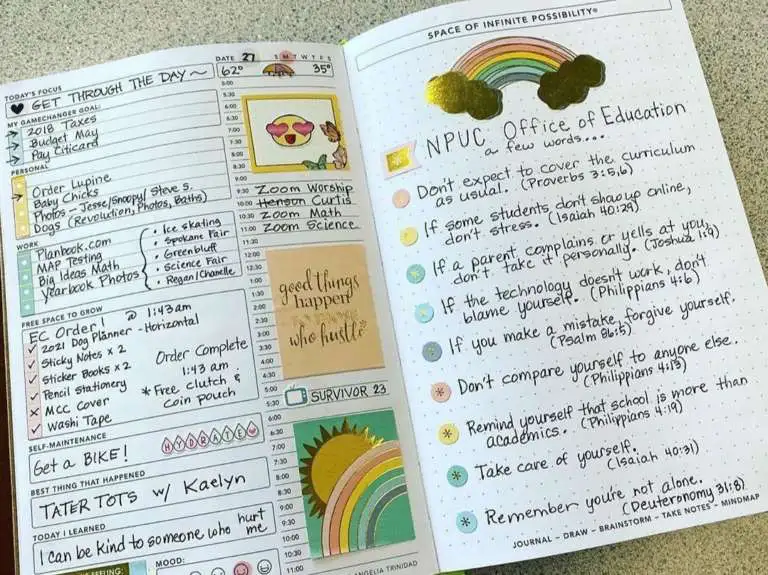 DATE 27 S M T W T F S
62° 35°
TODAY'S FOCUS
GET THROUGH THE DAY ~
MY GAMECHANGER GOAL:
→ 2018 Taxes
→ Budget May
→ Pay Citicard
PERSONAL
→ Order Lupine
Baby Chicks
Photos - Jesse/Snoopy/Steve S.
Dogs (Revolution, Photos, Baths)
WORK
Planbook.com
MAP Testing
Big Ideas Math
Yearbook Photos
• Ice skating
• Spokane Fair
• Greenbluff
• Science Fair
• Regan/Chanelle
FREE SPACE TO GROW
EC Order! @ 1:43am
✓ 2021 Dog Planner - Horizontal
✓ Sticky Notes x 2
✓ Sticker Books x 2
✓ Pencil Stationery
x MCC Cover
✓ Washi Tape
Order Complete
1:43 am
* Free clutch &
coin pouch
SELF-MAINTENANCE
Get a BIKE!
HYDRATE
BEST THING THAT HAPPENED
TATER TOTS w/ Kaelyn
TODAY I LEARNED
I can be kind to someone who hurt
me
FEELING:
MOOD:
5:00
5:30
6:00
6:30
7:00
7:30
8:00
8:30
9:00
9:30 Zoom Worship
10:00 Henson Curtis
10:30 Zoom Math
11:00 Zoom Science
11:30
12:00
12:30
1:00
1:30
2:00
2:30
3:00
3:30
4:00
4:30
good things
happen
to those
who hustle
5:30 SURVIVOR 23
6:00
6:30
7:00
7:30
8:00
8:30
9:00
9:30
10:00
10:30
11:00
ANGELIA TRINIDAD
SPACE OF INFINITE POSSIBILITY®
NPUC Office of Education
a few words...
Don't expect to cover the curriculum
as usual. (Proverbs 3:5,6)
If some students don't show up online,
don't stress. (Isaiah 40:29)
If a parent complains or yells at you,
don't take it personally. (Joshua 1:9)
If the technology doesn't work, don't
blame yourself. (Philippians 4:6)
If you make a mistake, forgive yourself.
(Psalm 86:5)
Don't compare yourself to anyone else.
(Philippians 4:13)
Remind yourself that school is more than
academics. (Philippians 4:19)
Take care of yourself.
(Isaiah 40:31)
Remember you're not alone.
(Deuteronomy 31:8)
JOURNAL - DRAW - BRAINSTORM - TAKE NOTES - MINDMAP